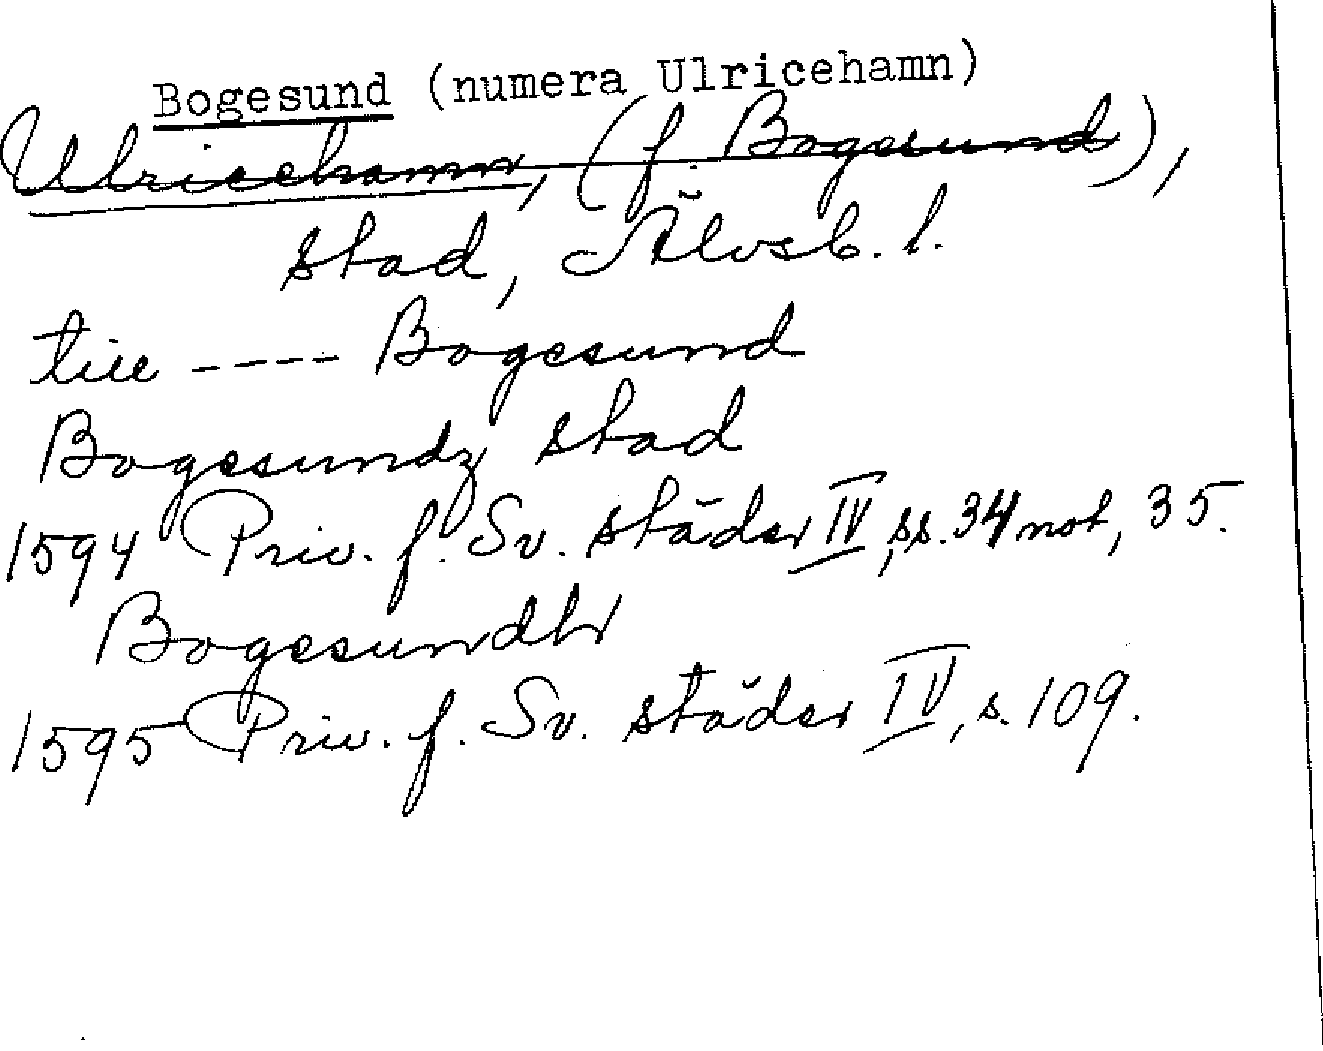 Bogesund (numera Ulricehamn)
Ulricehamn, (f. Bogesund),
stad, Älvsb. l.
till ---- Bogesund
Bogesundz stad
1594 Priv. f. Sv. städer IV, ss. 34 not, 35.
Bogesundh
1595 Priv. f. Sv. städer IV, s. 109.